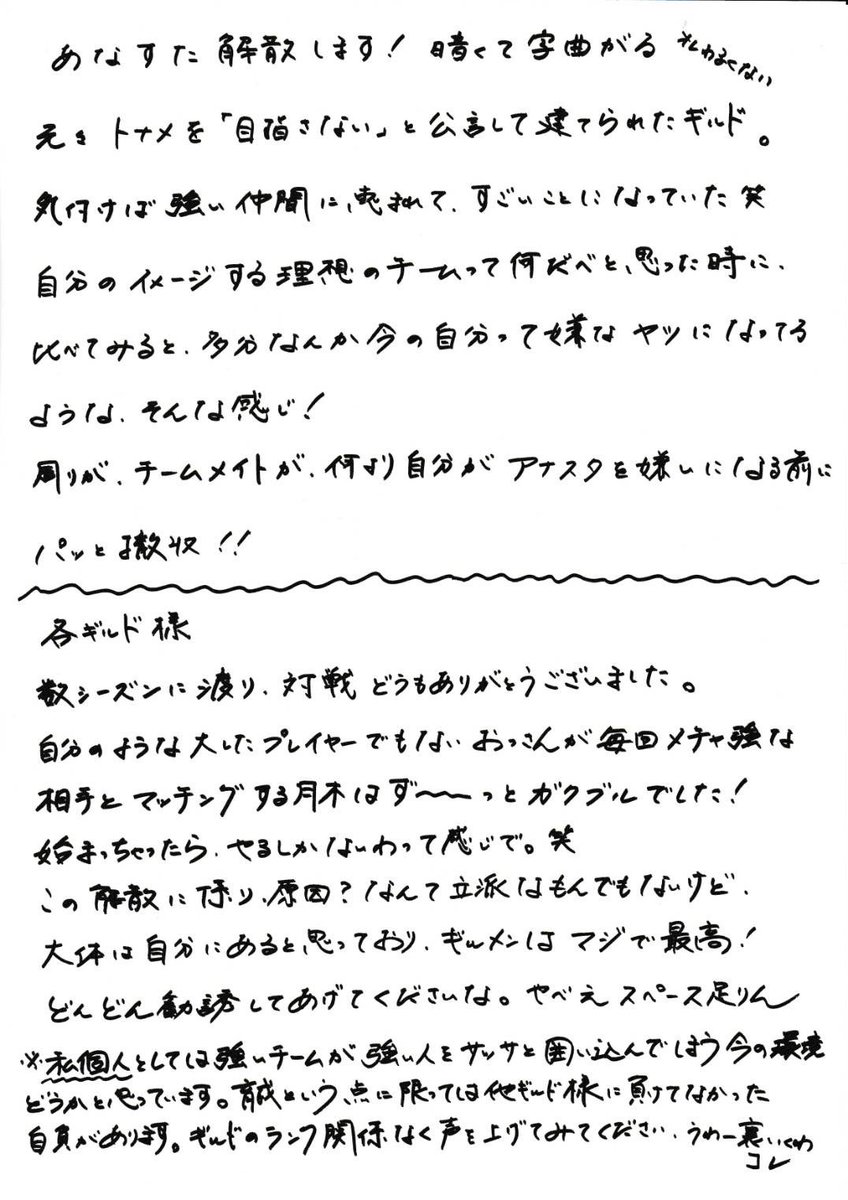 あなすた解散します! 暗くて字曲がる オレわるくない
元々トナメを「目指さない」と公言して建てられたギルド。
気付けば強い仲間に恵まれて、すごいことになっていた笑
自分のイメージする理想のチームって何だべと思った時に、
比べてみると、多分なんか今の自分って嫌なヤツになってる
ような、そんな感じ!
周りが、チームメイトが、何より自分がアナスタを嫌いになる前に
パッと撤収!!
各ギルド様
数シーズンに渡り、対戦どうもありがとうございました。
自分のような大したプレイヤーでもないおっさんが毎回メチャ強な
相手とマッチングする月木はず〜〜っとガクブルでした!
始まっちゃったら、やるしかないわって感じで。笑
この解散に係り、原因?なんて立派なもんでもないけど、
大体は自分にあると思っており、ギルメンはマジで最高!
どんどん勧誘してあげてくださいな。やべえスペース足りん
※私個人としては強いチームが強い人をサッサと囲い込んでしまう今の環境
どうかと思っています。育成という点に限っては他ギルド様に負けてなかった
自負があります。ギルドのランク関係なく声を上げてみてください、うわー裏いくわ
コレ